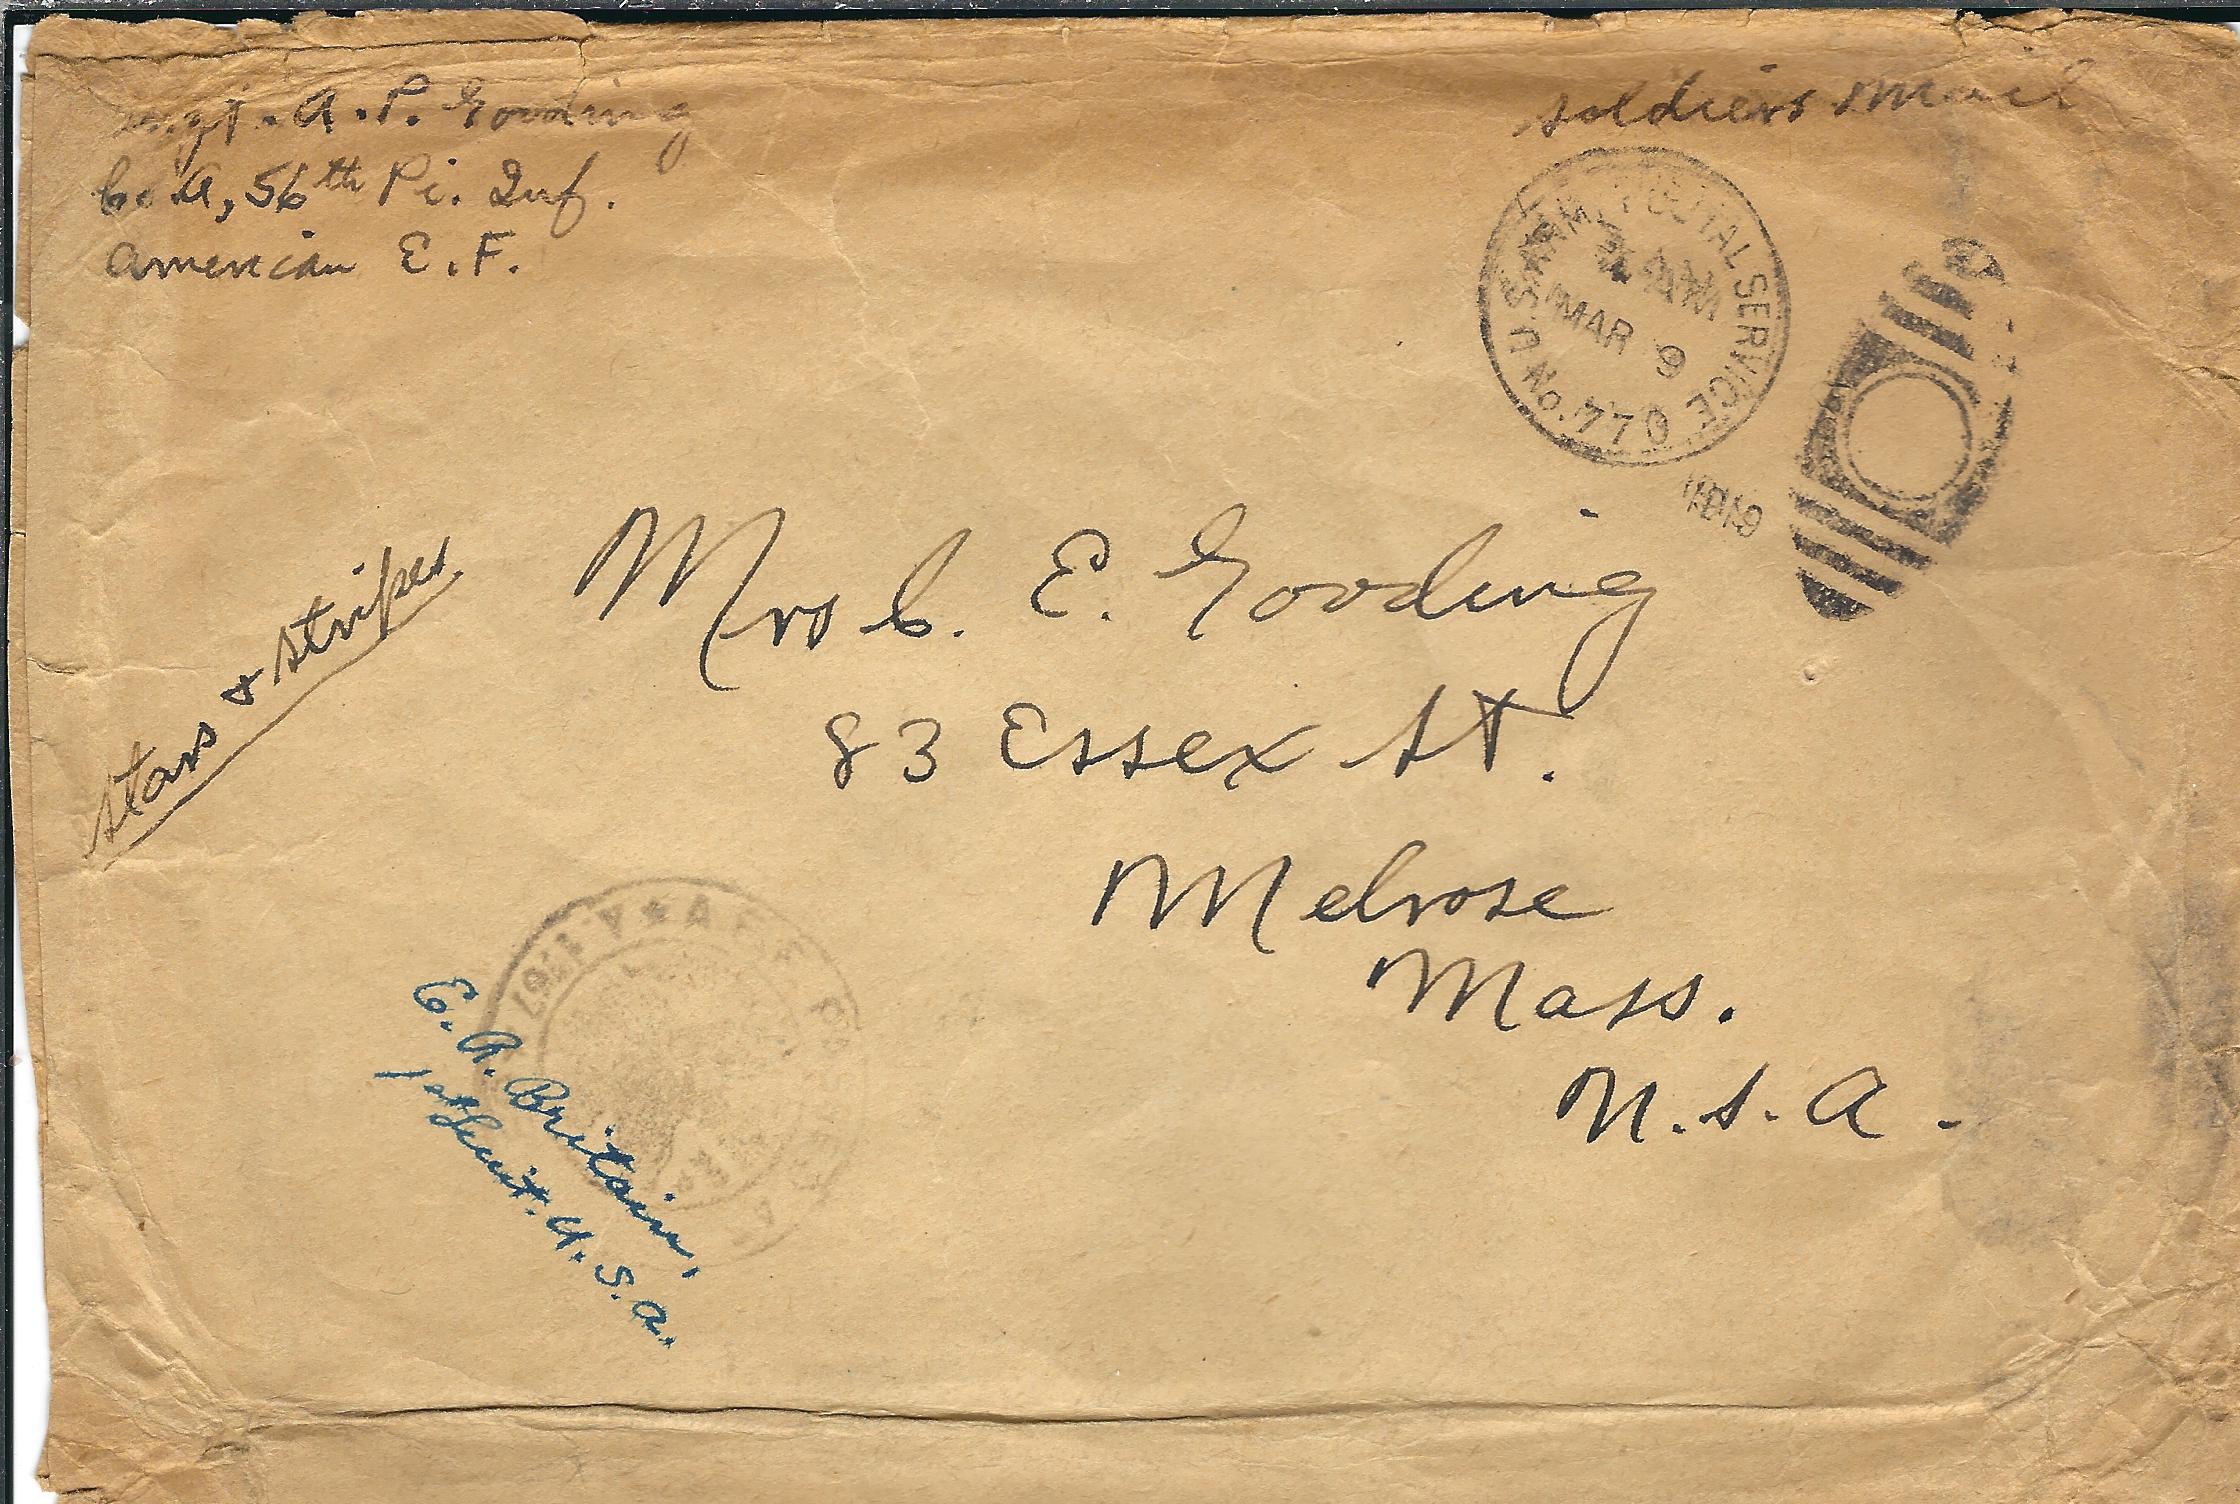 Sergt. A. P. Gooding
Co. A, 56th Pi. Inf.
American E. F.
Soldiers Mail
U.S. ARMY POSTAL SERVICE
AM
MAR 9
1919
No. 770
Stars & Stripes
Mrs C. E. Gooding
83 Essex St.
Melrose
Mass.
U. S. A.
A.E.F.
E. A. Britain,
1st Lieut. U. S. A.